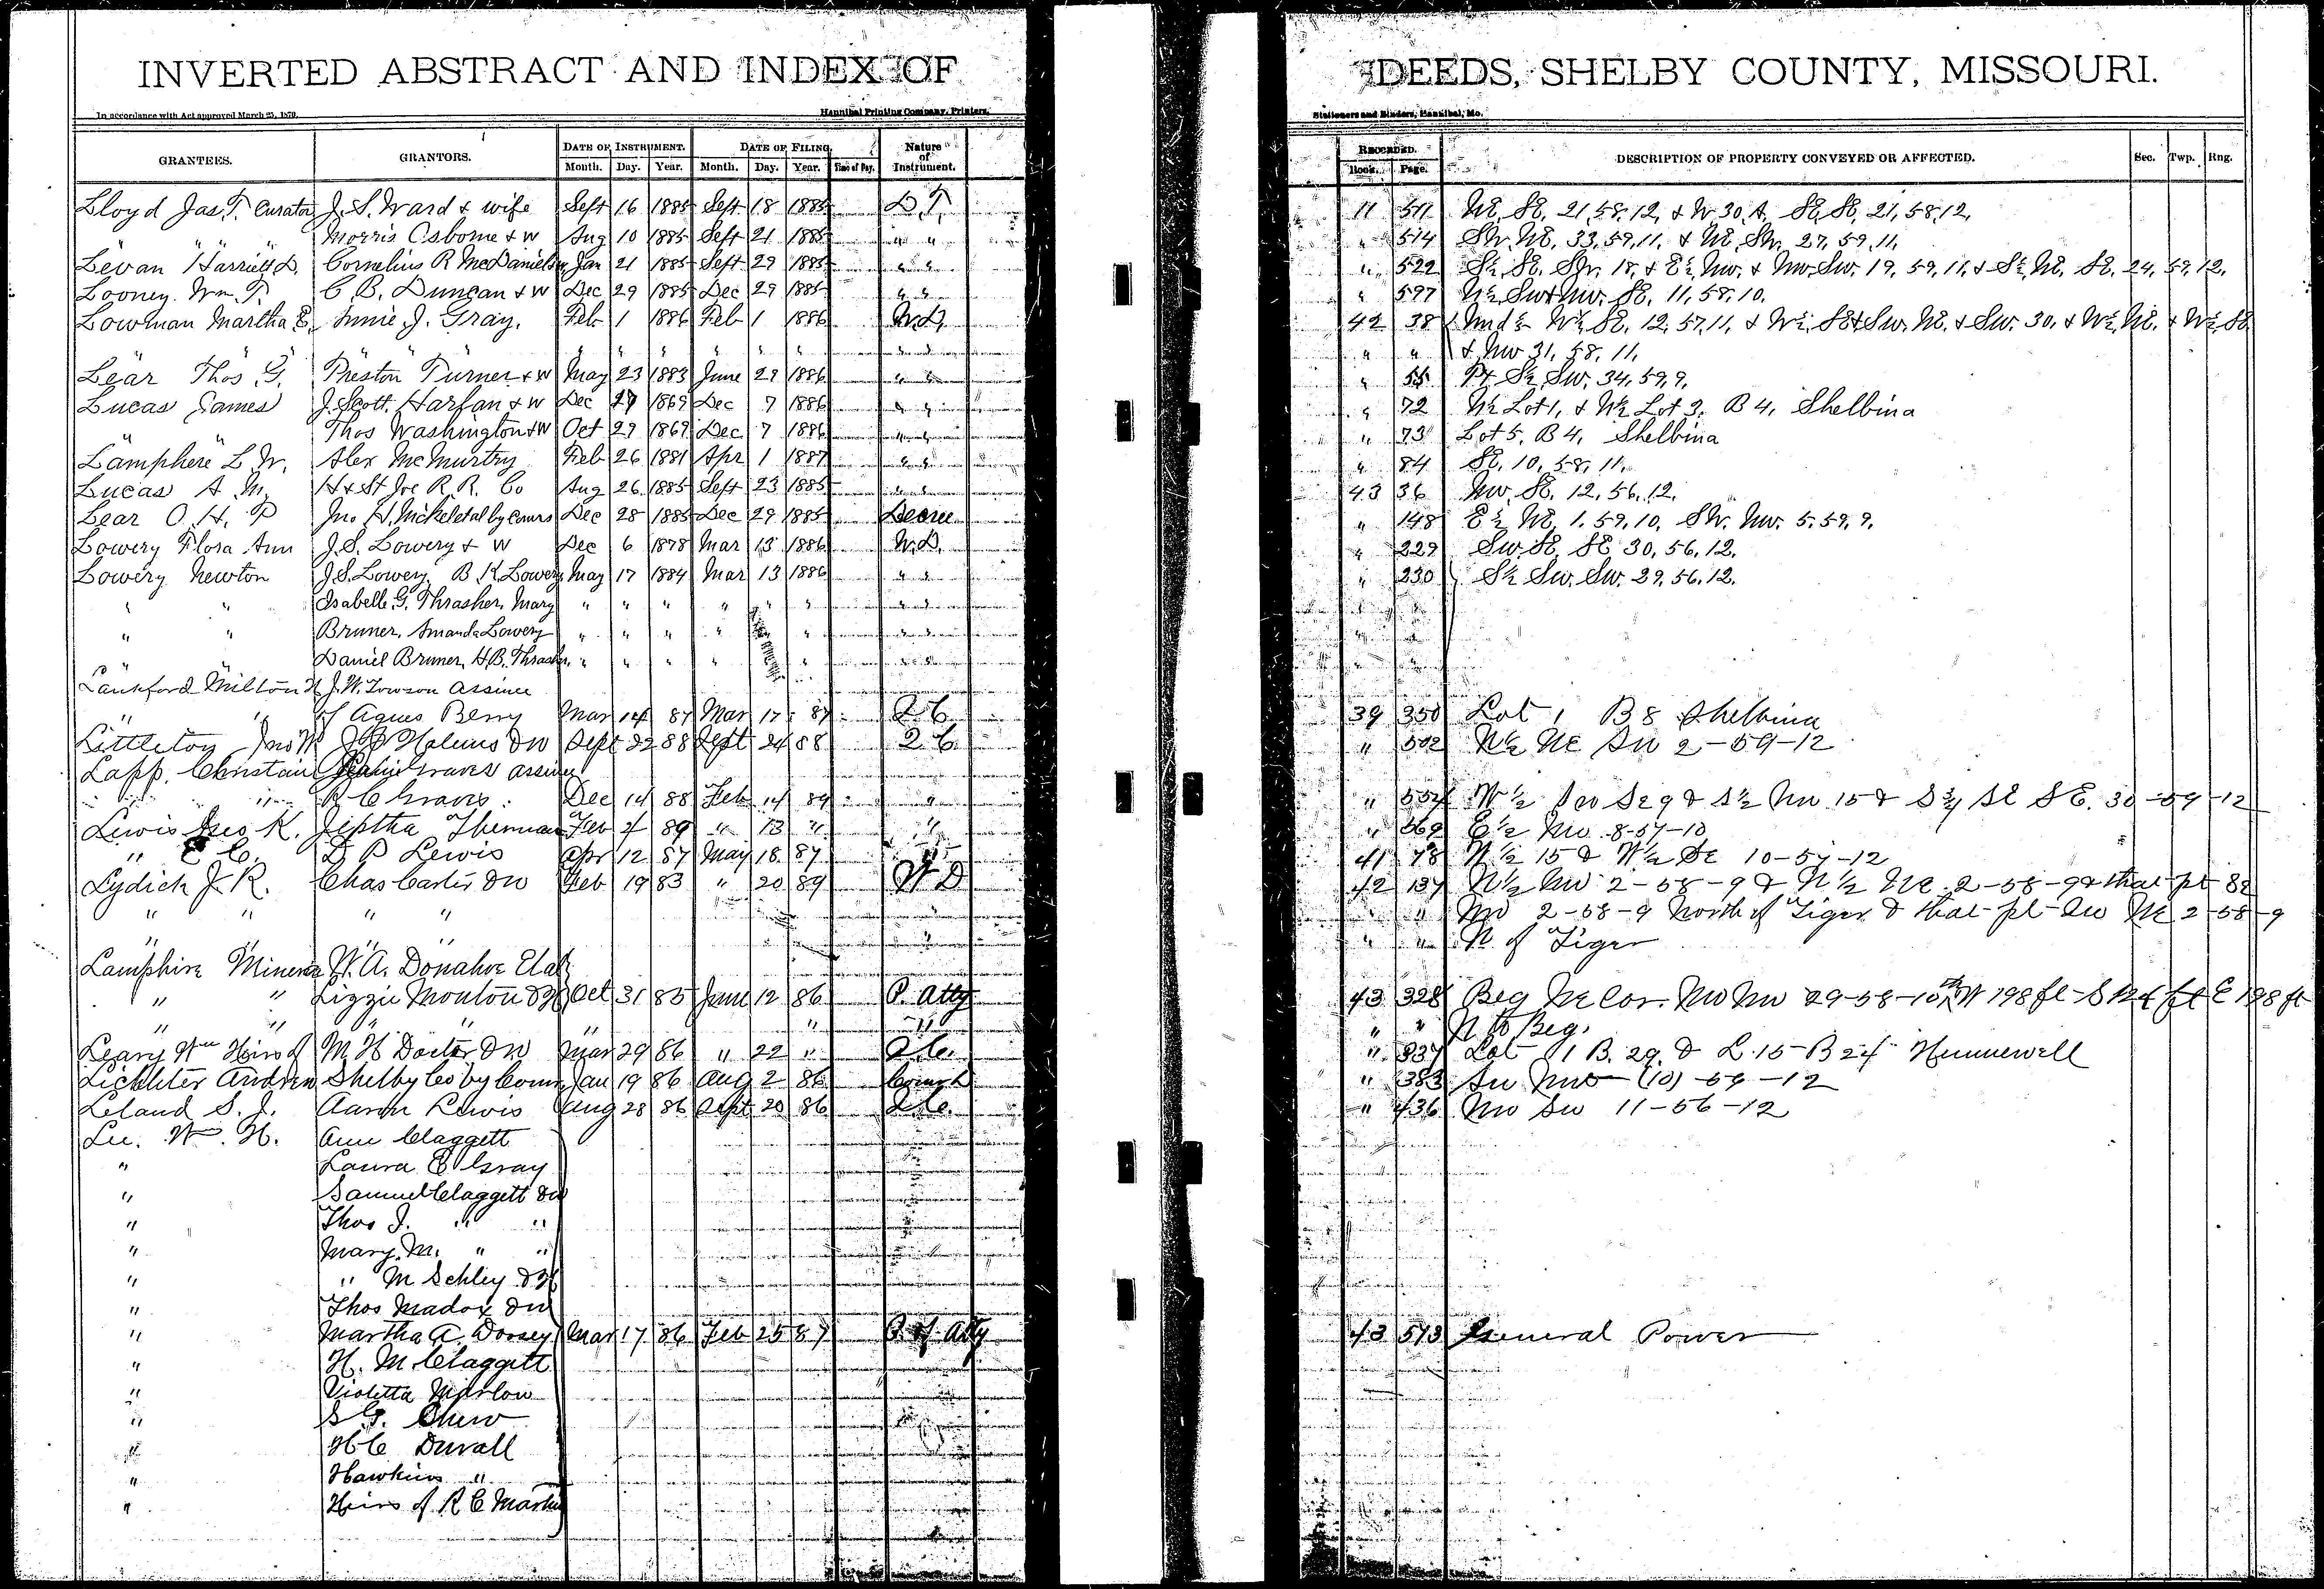 INVERTED ABSTRACT AND INDEX OF DEEDS, SHELBY COUNTY, MISSOURI.
In accordance with Act approved March 25, 1879. Hannibal Printing Company, Printers, Stationers and Binders, Hannibal, Mo.
GRANTEES. GRANTORS. DATE OF INSTRUMENT. DATE OF FILING. Nature of Instrument. RECORDED. DESCRIPTION OF PROPERTY CONVEYED OR AFFECTED. Sec. Twp. Rng.
Month. Day. Year. Month. Day. Year. Time of Day. Book. Page.
Lloyd Jas. T. Curator J. S. Ward & wife Sept 16 1885 Sept 18 1885 D.T. 11 511 NE, SE, 21, 58, 12, & W 30 A, SE, SE, 21, 58, 12,
" " Morris Osborne & W Aug 10 1885 Sept 21 1885 " " " 514 SW, NE, 33, 59, 11, & NE, SW, 27, 59, 11,
Levan Harriett D. Cornelius R McDaniel Jan 21 1885 Sept 29 1885 " " " 522 S½ SE, SW, 18, & E½ NW. & NW. SW. 19, 59, 11, & S½ NE, SE, 24, 59, 12,
Looney Wm. T. C. B. Duncan & W Dec 29 1885 Dec 29 1885 " " " 597 N½ SW & NW. SE, 11, 58, 10.
Lowman Martha E. Jinnie J. Gray. Feb 1 1886 Feb 1 1886 W.D. 42 38 Und ½ W½ SE, 12, 57, 11, & W½ SE & SW. NE. & SW. 30, & W½ NE. & W½ SE
" " " " " " " " " " " & NW 31, 58, 11,
Lear Thos G. Preston Turner & W May 23 1883 June 29 1886 " " " 55 Pt S½ SW. 34, 59, 9,
Lucas James J. Scott Harfan & W Dec 27 1869 Dec 7 1886 " " " 72 N½ Lot 1, & N½ Lot 3, B 4, Shelbina
" " Thos Washington & W Oct 29 1869 Dec 7 1886 " " " 73 Lot 5, B 4, Shelbina
Lamphere L W. Alex McMurtry Feb 26 1881 Apr 1 1887 " " " 84 SE, 10, 58, 11,
Lucas A M. H & St Joe R. R. Co Aug 26 1885 Sept 23 1885 " " 43 36 NW. SE. 12, 56, 12,
Lear O. H. P Jno H. Nickel et al by Comrs Dec 28 1885 Dec 29 1885 Decree " 148 E½ NE, 1, 59, 10, SW. NW. 5, 59, 9,
Lowery Flora Ann J. S. Lowery & W Dec 6 1878 Mar 13 1886 W.D. " 229 SW. SE, SE 30, 56, 12,
Lowery Newton J. S. Lowery, B. K. Lowery May 17 1884 Mar 13 1886 " " " 230 S½ SW. SW. 29, 56, 12,
" " Isabelle G. Thrasher, Mary " " " " " " " "
" " Bruner, Amanda Lowery " " " " " " " "
" " Daniel Bruner, H. B. Thrasher, " " " " " " " "
Lankford Milton H J. W. Towson Assinee
" " of Agnes Berry Mar 14 87 Mar 17 87 Q C 39 350 Lot 1 B 8 Shelbina
Littleton Jno W Holmes & W Sept 22 88 Sept 24 88 Q C " 502 N½ NE SW 2-59-12
Lapp. Christain Graves assinee
" " R C Graves Dec 14 88 Feb 14 89 " " 554 W½ SW SE 9 & S½ NW 15 & S¾ SE SE. 30-59-12
Lewis Geo K. Jeptha Sherman Feb 4 89 " 13 " " " 569 E½ NW 8-57-10
" E C. D P Lewis Apr 12 87 May 18 87 " 41 78 N½ 15 & W½ SE 10-57-12
Lydick J. R. Chas Carter & W Feb 19 83 " 20 89 W D 42 137 N½ NW 2-58-9 & N½ NE. 2-58-9 & that pt SE
" " " " " " NW 2-58-9 North of Tiger & that pt SW NE 2-58-9
" " " " " " N of Tiger
Lamphire Minerva W. A. Donahoe Et al
" " Lizzie Mouton & H Oct 31 85 June 12 86 P. Atty 43 328 Beg NE Cor. NW NW 29-58-10 th W 198 ft S 124 ft E 198 ft
" " " " " " " " " N to Beg.
Leary Wm Heirs of M H Doctor & W Mar 29 86 " 22 " Q.C. " 337 Lot 11 B. 29. & L. 15 B 24 Hunnewell
Lichliter Andrew Shelby Co by Comr Jan 19 86 Aug 2 86 Com D " 383 SW NW (10) -59-12
Leland S. J. Aaron Lewis Aug 28 86 Sept 20 86 Q.C. " 436 NW SW 11-56-12
Lee. Wm. H. Ann Claggett
" Laura E Gray
" Samuel Claggett & W
" Thos J. " "
" Mary. M. " "
" " M Schley & H
" Thos Madox & W
" Martha A. Dorsey Mar 17 86 Feb 25 87 P. of Atty 43 513 General Power
" H. M Claggett
" Violetta Marlow
" S G. Chew
" H C Duvall
" Hawkins "
" Heirs of R C Martin